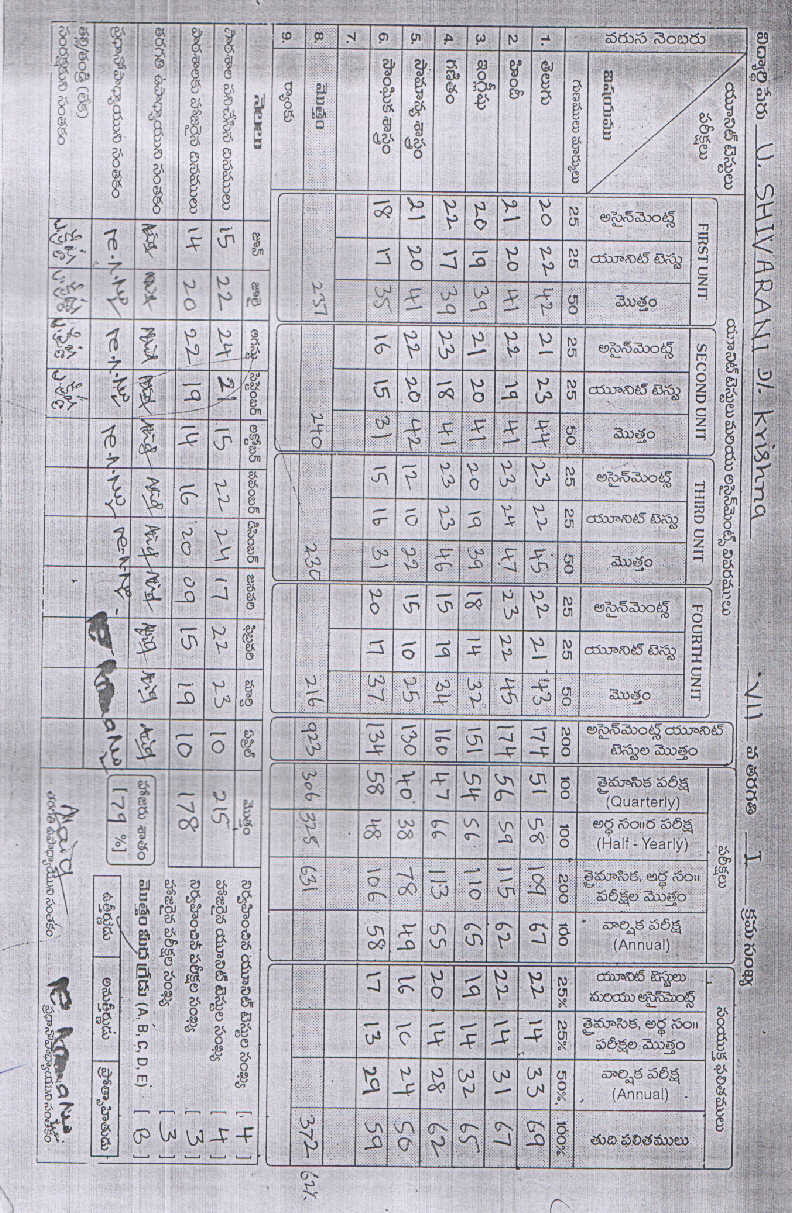 విద్యార్థి పేరు U. SHIVARANI D/. Krishna VII వ తరగతి I క్రమ సంఖ్య
యూనిట్ టెస్టులు పరీక్షలు యూనిట్ టెస్టులు మరియు అసైన్‌మెంట్స్ వివరములు పరీక్షలు సంయుక్త ఫలితములు
వరుస నెంబరు విషయము FIRST UNIT SECOND UNIT THIRD UNIT FOURTH UNIT
అసైన్‌మెంట్స్ యూనిట్ టెస్టు మొత్తం అసైన్‌మెంట్స్ యూనిట్ టెస్టు మొత్తం అసైన్‌మెంట్స్ యూనిట్ టెస్టు మొత్తం అసైన్‌మెంట్స్ యూనిట్ టెస్టు మొత్తం అసైన్‌మెంట్స్ యూనిట్ టెస్టుల మొత్తం త్రైమాసిక పరీక్ష (Quarterly) అర్ధ సం॥ర పరీక్ష (Half - Yearly) త్రైమాసిక, అర్ధ సం॥ పరీక్షల మొత్తం వార్షిక పరీక్ష (Annual) యూనిట్ టెస్టులు మరియు అసైన్‌మెంట్స్ త్రైమాసిక, అర్ధ సం॥ పరీక్షల మొత్తం వార్షిక పరీక్ష (Annual) తుది ఫలితములు
గుణములు మార్కులు 25 25 50 25 25 50 25 25 50 25 25 50 200 100 100 200 100 25% 25% 50% 100%
1. తెలుగు 20 22 42 21 23 44 23 22 45 22 21 43 174 51 58 109 67 22 14 33 69
2 హింది 21 20 41 22 19 41 23 24 47 23 22 45 174 56 59 115 62 22 14 31 67
3. ఇంగ్లీషు 20 19 39 21 20 41 20 19 39 18 14 32 151 54 56 110 65 19 14 32 65
4. గణితం 22 17 39 23 18 41 23 23 46 15 19 34 160 47 66 113 55 20 14 28 62
5. సామాన్య శాస్త్రం 21 20 41 22 20 42 12 10 22 15 10 25 130 40 38 78 49 16 10 24 50
6. సాంఘిక శాస్త్రం 18 17 35 16 15 31 15 16 31 20 17 37 134 58 48 106 58 17 13 29 59
7.
8. మొత్తం 237 240 230 216 923 306 325 631 372 62%
9. ర్యాంకు
నెలలు జూన్ జూలై ఆగస్టు సెప్టెంబర్ అక్టోబర్ నవంబర్ డిసెంబర్ జనవరి ఫిబ్రవరి మార్చి ఏప్రిల్ మొత్తం
పాఠశాల పనిచేసిన దినములు 15 22 24 21 15 22 24 17 22 23 10 215
పాఠశాలకు హాజరైన దినములు 14 20 22 19 14 16 20 09 15 19 10 178
తరగతి ఉపాధ్యాయుని సంతకం
ప్రధానోపాధ్యాయుని సంతకం
తల్లి/తండ్రి (లేక) సంరక్షకుని సంతకం
హాజరు శాతం 179 %
నిర్వహించిన యూనిట్ టెస్టుల సంఖ్య [ 4 ]
హాజరైన యూనిట్ టెస్టుల సంఖ్య [ 4 ]
నిర్వహించిన పరీక్షల సంఖ్య [ 3 ]
హాజరైన పరీక్షల సంఖ్య [ 3 ]
మొత్తం మీద గ్రేడు (A, B, C, D, E) [ B ]
ఉత్తీర్ణుడు అనుత్తీర్ణుడు ప్రోత్సాహితుడు
తరగతి ఉపాధ్యాయుని సంతకం ప్రధానోపాధ్యాయుని సంతకం